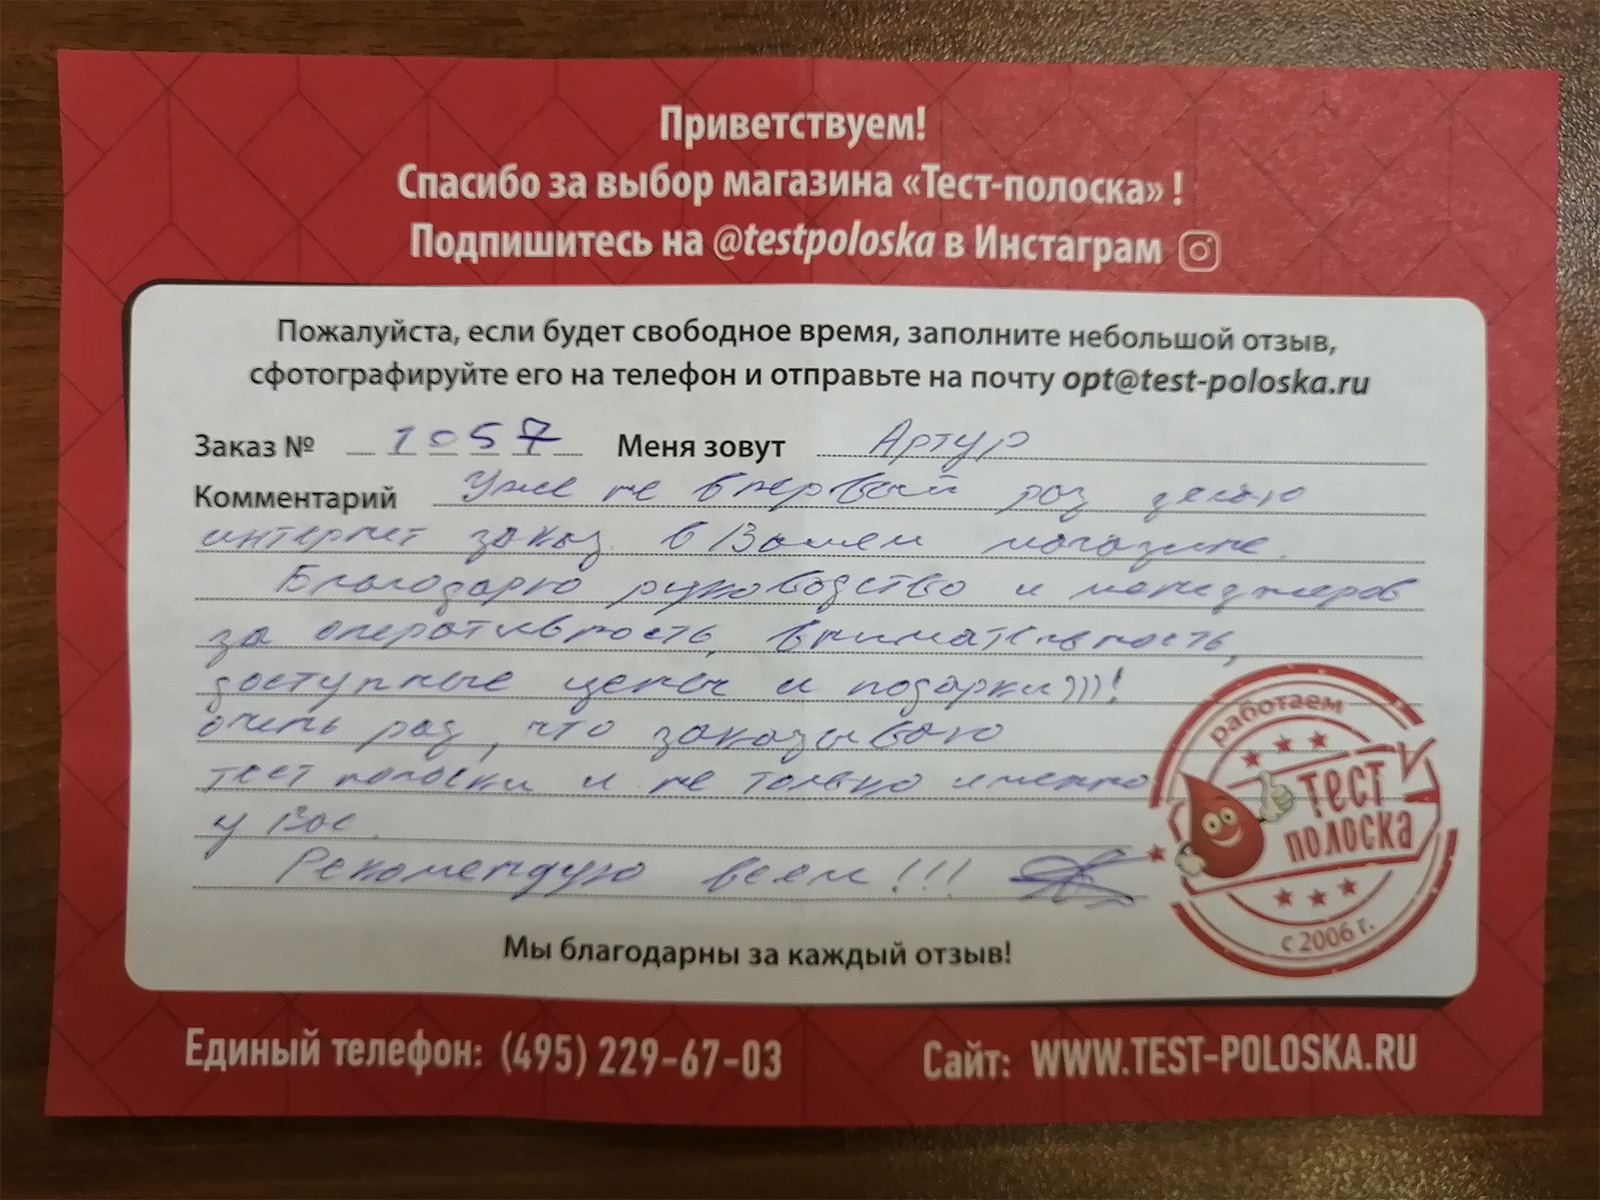 Приветствуем!
Спасибо за выбор магазина «Тест-полоска» !
Подпишитесь на @testpoloska в Инстаграм
Пожалуйста, если будет свободное время, заполните небольшой отзыв,
сфотографируйте его на телефон и отправьте на почту opt@test-poloska.ru
Заказ № 1057 Меня зовут Артур
Комментарий Уже не впервый раз делаю
интернет заказ в Вашем магазине.
Благодарю руководство и менеджеров
за оперативность, внимательность,
доступные цены и подарки)))!
очень рад, что заказываю
тест полоски и не только именно
у Вас.
Рекомендую всем!!!
работаем
ТЕСТ
ПОЛОСКА
с 2006 г.
Мы благодарны за каждый отзыв!
Единый телефон: (495) 229-67-03 Сайт: WWW.TEST-POLOSKA.RU